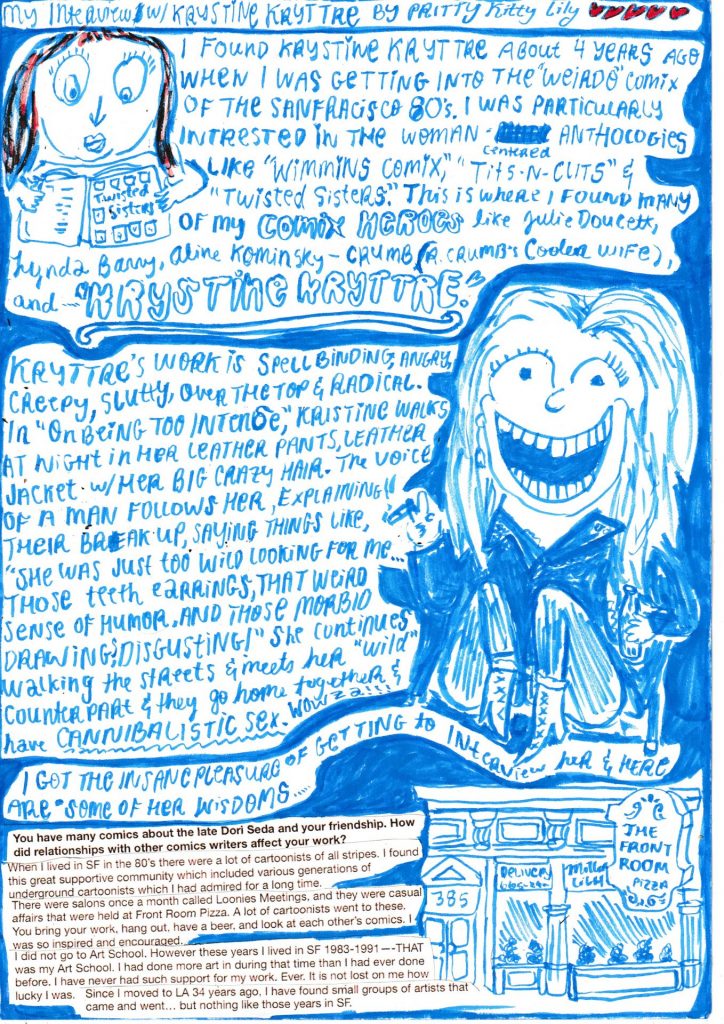 My Interview w/ KRYSTINE KRYTTRE BY PRITTY Kitty Lily
I FOUND KRYSTINE KRYTTRE ABOUT 4 YEARS AGO
WHEN I WAS GETTING INTO THE "WEIRDO" COMIX
OF THE SANFRACISCO 80's. I WAS PARTICULARLY
INTRESTED IN THE WOMAN - CENTERED ANTHOLOGIES
LIKE "WIMMINS COMIX," "TITS-N-CLITS" &
"TWISTED SISTERS." This is where I FOUND MANY
OF MY COMIX HEROES like Julie Doucett,
Lynda Barry, Aline Kominsky - CRUMB (R. CRUMB's Cooler WIFE),
and ... "KRYSTINE KRYTTRE."
Twisted
Sisters
KRYTTRE'S WORK IS SPELL BINDING, ANGRY,
CREEPY, SLUTTY, OVER THE TOP & RADICAL.
In "ON BEING TOO INTENSE," KRISTINE WALKS
AT NIGHT IN HER LEATHER PANTS, LEATHER
JACKET W/ HER BIG CRAZY HAIR. The VOICE
OF A MAN FOLLOWS HER, EXPLAINING
THEIR BREAK UP, SAYING THINGS LIKE,
"SHE WAS JUST TOO WILD LOOKING FOR ME...
THOSE teeth EARRINGS, THAT WEIRD
SENSE OF HUMOR, AND THOSE MORBID
DRAWINGS, DISGUSTING!" She continues
walking the streets & meets her "wild"
counterpart & they go home together &
have CANNIBALISTIC SEX. WOWZA!!!
I GOT THE INSANE PLEASURE OF GETTING to INTERVIEW her & HERE
ARE SOME OF HER WISDOMS....
You have many comics about the late Dori Seda and your friendship. How
did relationships with other comics writers affect your work?
When I lived in SF in the 80's there were a lot of cartoonists of all stripes. I found
this great supportive community which included various generations of
underground cartoonists which I had admired for a long time.
There were salons once a month called Loonies Meetings, and they were casual
affairs that were held at Front Room Pizza. A lot of cartoonists went to these.
You bring your work, hang out, have a beer, and look at each other's comics. I
was so inspired and encouraged.
I did not go to Art School. However these years I lived in SF 1983-1991—-THAT
was my Art School. I had done more art in during that time than I had ever done
before. I have never had such support for my work. Ever. It is not lost on me how
lucky I was. Since I moved to LA 34 years ago, I have found small groups of artists that
came and went… but nothing like those years in SF.
THE
FRONT
ROOM
PIZZA
DELIVERY
385